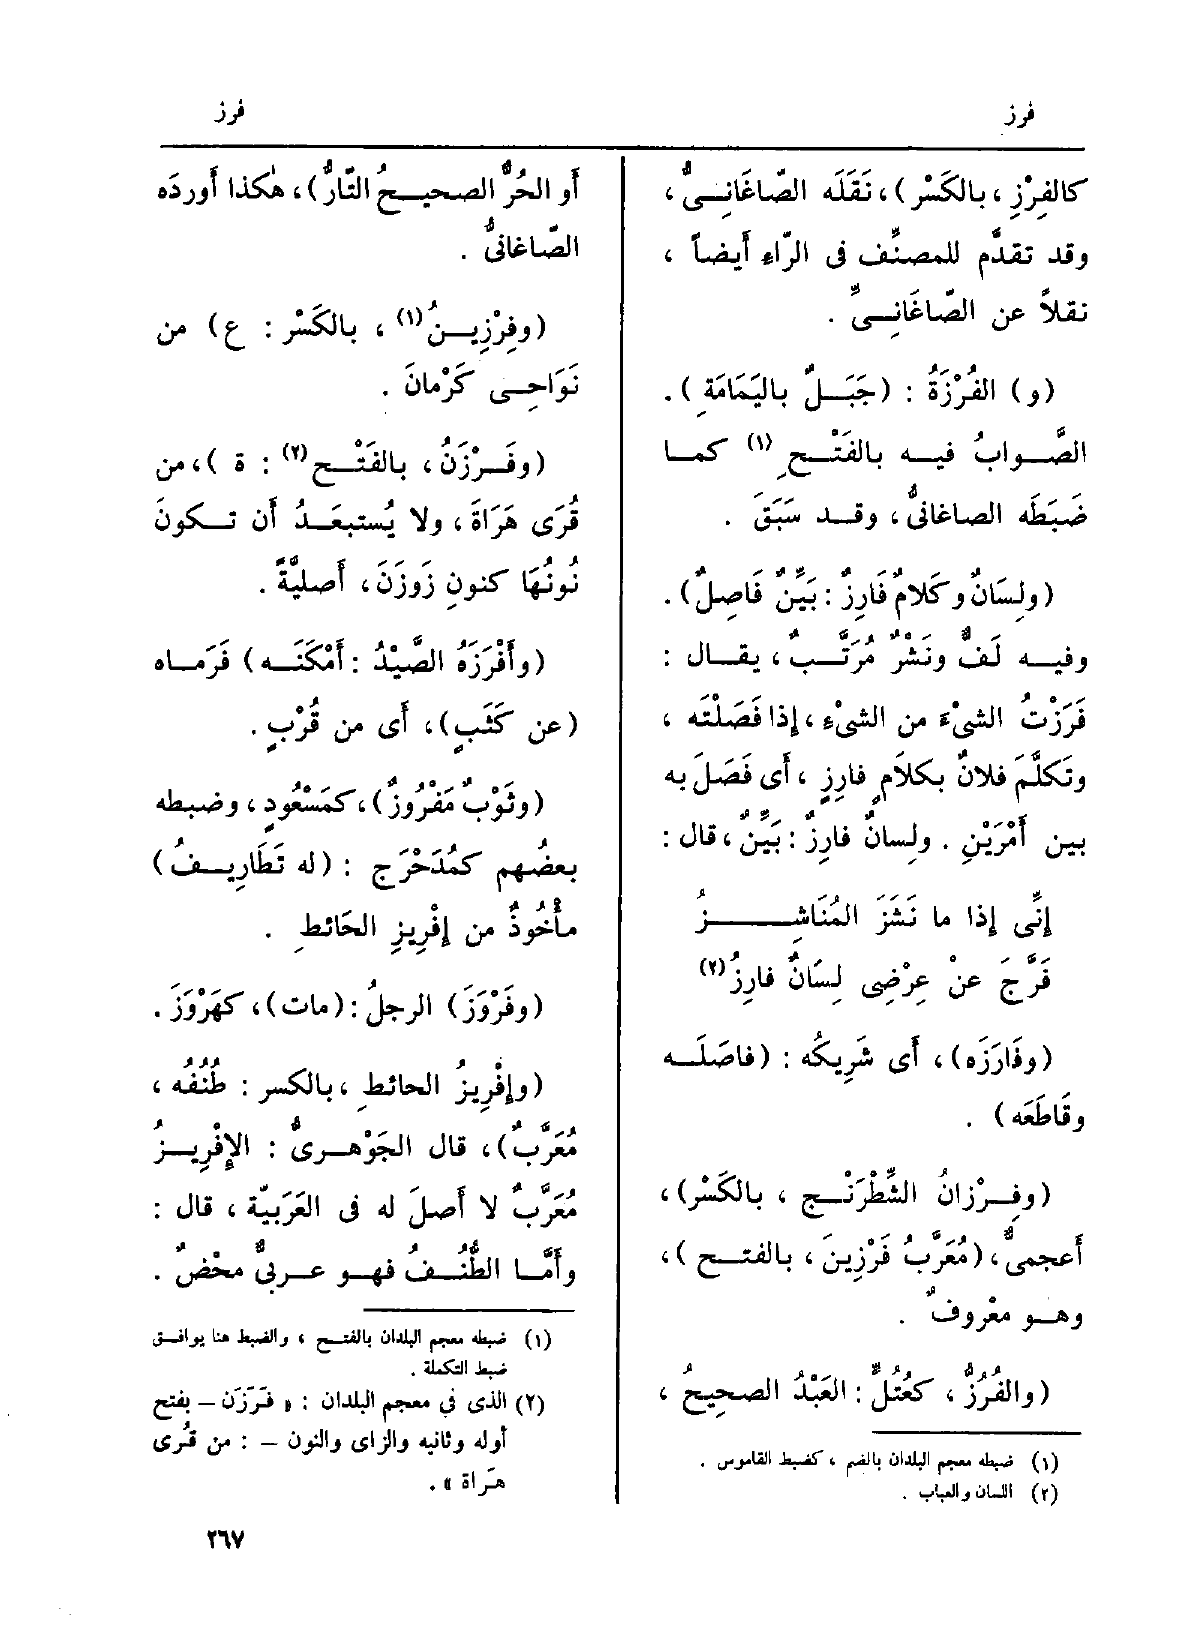 فرز
فرز
كالفِرْزِ ، بالكَسْرِ) ، نَقَلَه الصّاغَانِـىُّ ،
وقد تقدَّم للمصنِّف فى الرّاءِ أَيضاً ،
نقلاً عن الصّاغَانِـىِّ .
(و) الفُرْزَةُ : (جَبَـلٌ باليَمَامَةِ) .
الصَّـوابُ فيـه بالفَتْـحِ (١) كمـا
ضَبَطَه الصاغانىُّ ، وقـد سَبَقَ .
(ولِسَانٌ وكَلامٌ فَارِزٌ : بَيِّنٌ فَاصِلٌ) .
وفيـه لَفٌّ ونَشْرٌ مُرَتَّـبٌ ، يقـال :
فَرَزْتُ الشىْءَ من الشىْءِ ، إِذا فَصَلْتَه ،
وتَكلَّمَ فلانٌ بكلاَمٍ فارِزٍ ، أَى فَصَلَ به
بين أَمْرَيْنِ . ولِسانٌ فارِزٌ : بَيِّنٌ ، قال :
إِنِّى إِذا ما نَشَزَ المُنَاشِـزُ
فَرَّجَ عنْ عِرْضِى لِسَانٌ فارِزُ (٢)
(وفَارَزَه) ، أَى شَرِيكَه : (فاصَلَـه
وقَاطَعَه) .
(وفِـرْزانُ الشِّطْرَنْـجِ ، بالكَسْرِ) ،
أَعجمىٌّ ، (مُعَرَّبُ فَرْزِينَ ، بالفتـح) ،
وهـو معْروفٌ .
(والفُرُزُّ ، كعُتُلٍّ : العَبْدُ الصحيحُ ،
(١) ضبطه معجم البلدان بالضم ، كضبط القاموس .
(٢) اللسان والعباب .
أَو الحُرُّ الصحيـحُ التّارُّ) ، هٰكذا أَوردَه
الصّاغانىُّ .
(وفِرْزِيـنُ (١) ، بالكَسْرِ : ع) من
نَوَاحِـى كَرْمانَ .
(وفَـرْزَنُ ، بالفَتْـح (٢) : ة) ، من
قُرَى هَرَاةَ ، ولا يُستبعَـدُ أَن تـكونَ
نُونُهَا كنونِ زَوْزَنَ ، أَصليَّةً .
(وأَفْرَزَهُ الصَّيْدُ : أَمْكَنَـه) فَرَمـاه
(عن كَثَبٍ) ، أَى من قُرْبٍ .
(وثَوْبٌ مَفْرُوزٌ) ، كمَسْعُودٍ ، وضبطه
بعضُهم كمُدَحْرَجٍ : (له تَطَارِيـفُ)
مأْخُوذٌ من إِفْرِيزِ الحَائطِ .
(وفَرْوَزَ) الرجلُ : (مات) ، كهَرْوَزَ .
(وإِفْرِيزُ الحائطِ ، بالكسر : طُنُفُه ،
مُعَرَّبٌ) ، قال الجَوْهـرىُّ : الإِفْرِيـزُ
مُعَرَّبٌ لا أَصلَ له فى العَرَبيّة ، قال :
وأَمَّـا الطُّنُـفُ فهـو عـربىٌّ محْضٌ .
(١) ضبطه معجم البلدان بالفتـح ، والضبط هنا يوافـق
ضبط التكملة .
(٢) الذى فى معجم البلدان : « فَرَزَن – بفتح
أوله وثانيه والزاى والنون – : من قُرى
هَراة » .
٢٦٧